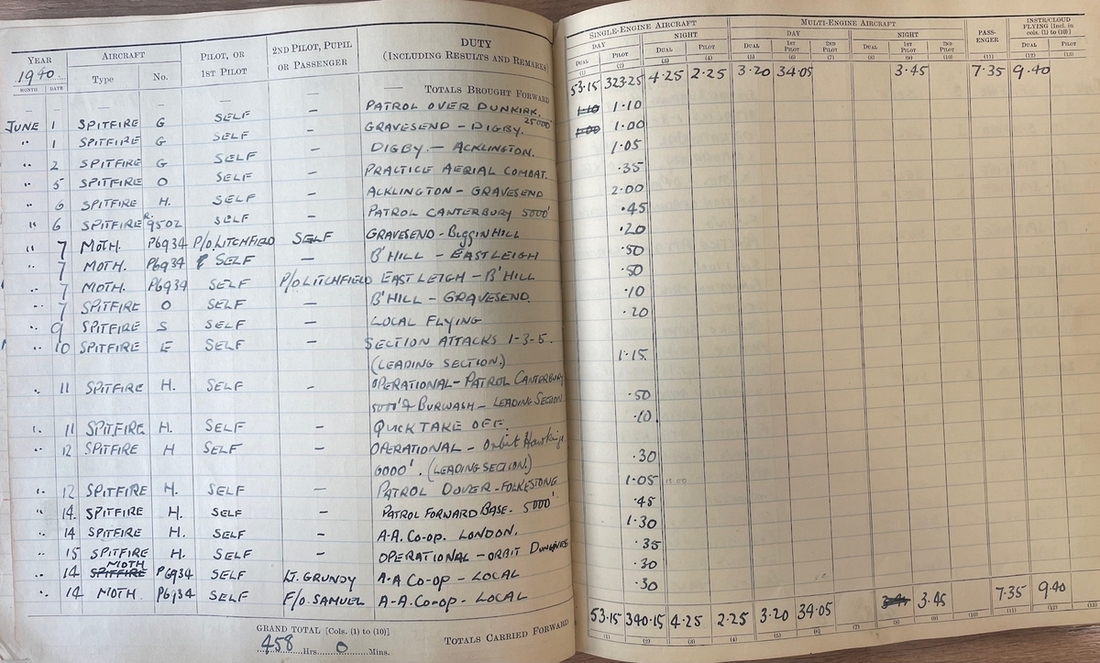 YEAR AIRCRAFT PILOT, OR 2ND PILOT, PUPIL DUTY
1940 Type No. 1ST PILOT OR PASSENGER (INCLUDING RESULTS AND REMARKS)
MONTH DATE
— — — — — — TOTALS BROUGHT FORWARD
JUNE 1 SPITFIRE G SELF — PATROL OVER DUNKIRK. 25000'
" 1 SPITFIRE G SELF — GRAVESEND — DIGBY.
" 2 SPITFIRE G SELF — DIGBY. — ACKLINGTON.
" 5 SPITFIRE O SELF — PRACTICE AERIAL COMBAT.
" 6 SPITFIRE H. SELF — ACKLINGTON — GRAVESEND
" 6 SPITFIRE R. 9502 SELF — PATROL CANTERBURY 5000'
" 7 MOTH. P6934 P/O. LITCHFIELD SELF GRAVESEND — BIGGIN HILL
" 7 MOTH. P6934 SELF — B'HILL — EASTLEIGH
" 7 MOTH. P6934 SELF P/O LITCHFIELD EASTLEIGH — B'HILL
" 7 SPITFIRE O SELF — B'HILL — GRAVESEND.
" 9 SPITFIRE S SELF — LOCAL FLYING
" 10 SPITFIRE E SELF — SECTION ATTACKS 1-3-5.
(LEADING SECTION.)
" 11 SPITFIRE H. SELF — OPERATIONAL — PATROL CANTERBURY
BURWASH — LEADING SECTION
" 11 SPITFIRE H. SELF — QUICK TAKE OFF.
" 12 SPITFIRE H SELF — OPERATIONAL — Orbit Hawkinge
6000'. (LEADING SECTION.)
" 12 SPITFIRE H. SELF — PATROL DOVER — FOLKESTONE
" 14. SPITFIRE H. SELF — PATROL FORWARD BASE. 5000'
" 14 SPITFIRE H. SELF — A.A. Co-op. LONDON.
" 15 SPITFIRE H. SELF — OPERATIONAL — ORBIT DUNGENESS
" 14 SPITFIRE MOTH P6934 SELF LT. GRUNDY A.A Co-op — LOCAL
" 14 MOTH P6934 SELF F/O. SAMUEL A.A. Co-op — LOCAL
GRAND TOTAL [Cols. (1) to (10)] TOTALS CARRIED FORWARD
458 Hrs. 0 Mins.
SINGLE-ENGINE AIRCRAFT MULTI-ENGINE AIRCRAFT PASS-ENGER INSTR/CLOUD FLYING [Incl. in cols. (1) to (10)]
DAY NIGHT DAY NIGHT
DUAL PILOT DUAL PILOT DUAL 1ST PILOT 2ND PILOT DUAL 1ST PILOT 2ND PILOT DUAL PILOT
(1) (2) (3) (4) (5) (6) (7) (8) (9) (10) (11) (12) (13)
53.15 323.25 4.25 2.25 3.20 34.05 3.45 7.35 9.40
1.10 1.10
1.00 1.00
1.05
.35
2.00
.45
.20
.50
.50
.10
.20
1.15
.50
.10
.30
1.05
.45
1.30
.35
.30
.30
53.15 340.15 4.25 2.25 3.20 34.05 3.45 7.35 9.40
(1) (2) (3) (4) (5) (6) (7) (8) (9) (10) (11) (12) (13)